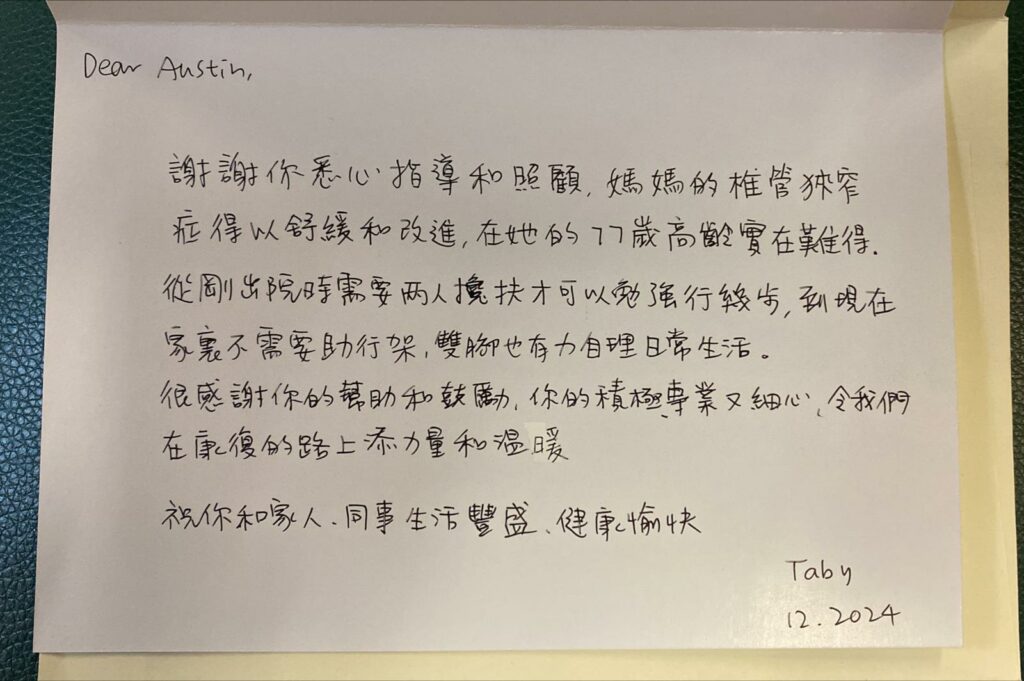 Dear Austin,
謝謝你悉心指導和照顧，媽媽的椎管狹窄
症得以舒緩和改進，在她的77歲高齡實在難得.
從剛出院時需要两人攙扶才可以勉強行幾步，到現在
家裏不需要助行架，雙腳也有力自理日常生活。
很感謝你的幫助和鼓勵，你的積極、專業又細心，令我們
在康復的路上添力量和温暖
祝你和家人、同事生活豐盛、健康愉快
Taby
12.2024